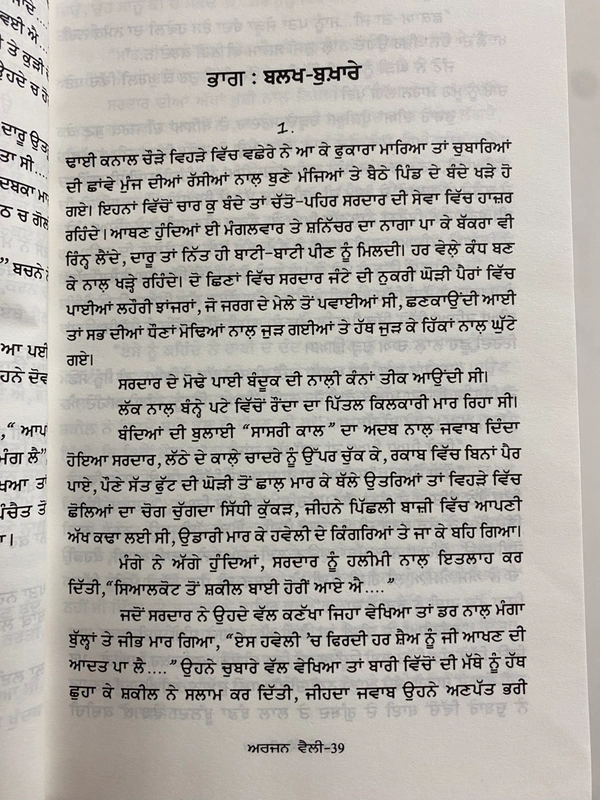 ਜਾਦੇ....
ਵਈ ਐ....
ੀ ਤੇ ਕੁੜੀ ਦੇ
ਉਹਦੇ ਚ ਹੋ
ਦਾਰੂ ਉਤ
ਤਾ ਸੀ....
ਦਬਕਾ ਮਾ
ਠ ਚ ਗੋਲੀ
” ਬਚਨੇ ਨੇ
ਆ ਪਈ
ਹਨੇ ਦੋਵ
,“ ਆਪ
ਮੰਗ ਲੈ”
ਖਿਆ ਤਾਂ
ਪੰਚੈਤ ਤੋਂ
ਾ।
ਭਾਗ : ਬਲਖ-ਬੁਖ਼ਾਰੇ
1.
ਢਾਈ ਕਨਾਲ ਚੌੜੇ ਵਿਹੜੇ ਵਿੱਚ ਵਛੇਰੇ ਨੇ ਆ ਕੇ ਫੁਕਾਰਾ ਮਾਰਿਆ ਤਾਂ ਚੁਬਾਰਿਆਂ
ਦੀ ਛਾਂਵੇ ਮੁੰਜ ਦੀਆਂ ਰੱਸੀਆਂ ਨਾਲ਼ ਬੁਣੇ ਮੰਜਿਆਂ ਤੇ ਬੈਠੇ ਪਿੰਡ ਦੇ ਬੰਦੇ ਖੜੇ ਹੋ
ਗਏ। ਇਹਨਾਂ ਵਿੱਚੋਂ ਚਾਰ ਕੁ ਬੰਦੇ ਤਾਂ ਚੱਤੋ-ਪਹਿਰ ਸਰਦਾਰ ਦੀ ਸੇਵਾ ਵਿੱਚ ਹਾਜ਼ਰ
ਰਹਿੰਦੇ। ਆਥਣ ਹੁੰਦਿਆਂ ਈ ਮੰਗਲਵਾਰ ਤੇ ਸ਼ਨਿੱਚਰ ਦਾ ਨਾਗਾ ਪਾ ਕੇ ਬੱਕਰਾ ਵੀ
ਰਿੰਨ੍ਹ ਲੈਂਦੇ, ਦਾਰੂ ਤਾਂ ਨਿੱਤ ਹੀ ਬਾਟੀ-ਬਾਟੀ ਪੀਣ ਨੂੰ ਮਿਲਦੀ। ਹਰ ਵੇਲ਼ੇ ਕੰਧ ਬਣ
ਕੇ ਨਾਲ਼ ਖੜ੍ਹੇ ਰਹਿੰਦੇ। ਦੋ ਛਿਣਾਂ ਵਿੱਚ ਸਰਦਾਰ ਜੰਟੇ ਦੀ ਨੁਕਰੀ ਘੋੜੀ ਪੈਰਾਂ ਵਿੱਚ
ਪਾਈਆਂ ਲਹੌਰੀ ਝਾਂਜਰਾਂ, ਜੋ ਜਰਗ ਦੇ ਮੇਲੇ ਤੋਂ ਪਵਾਈਆਂ ਸੀ, ਛਣਕਾਉਂਦੀ ਆਈ
ਤਾਂ ਸਭ ਦੀਆਂ ਧੌਣਾਂ ਮੋਢਿਆਂ ਨਾਲ਼ ਜੁੜ ਗਈਆਂ ਤੇ ਹੱਥ ਜੁੜ ਕੇ ਹਿੱਕਾਂ ਨਾਲ਼ ਘੁੱਟੇ
ਗਏ।
ਸਰਦਾਰ ਦੇ ਮੋਢੇ ਪਾਈ ਬੰਦੂਕ ਦੀ ਨਾਲ਼ੀ ਕੰਨਾਂ ਤੀਕ ਆਉਂਦੀ ਸੀ।
ਲੱਕ ਨਾਲ਼ ਬੰਨ੍ਹੇ ਪਟੇ ਵਿੱਚੋਂ ਰੌਂਦਾ ਦਾ ਪਿੱਤਲ ਕਿਲਕਾਰੀ ਮਾਰ ਰਿਹਾ ਸੀ।
ਬੰਦਿਆਂ ਦੀ ਬੁਲਾਈ “ਸਾਸਰੀ ਕਾਲ” ਦਾ ਅਦਬ ਨਾਲ਼ ਜਵਾਬ ਦਿੰਦਾ
ਹੋਇਆ ਸਰਦਾਰ, ਲੱਠੇ ਦੇ ਕਾਲ਼ੇ ਚਾਦਰੇ ਨੂੰ ਉੱਪਰ ਚੁੱਕ ਕੇ, ਰਕਾਬ ਵਿੱਚ ਬਿਨਾਂ ਪੈਰ
ਪਾਏ, ਪੌਣੇ ਸੱਤ ਫੁੱਟ ਦੀ ਘੋੜੀ ਤੋਂ ਛਾਲ਼ ਮਾਰ ਕੇ ਥੱਲੇ ਉਤਰਿਆਂ ਤਾਂ ਵਿਹੜੇ ਵਿੱਚ
ਛੋਲਿਆਂ ਦਾ ਚੋਗ ਚੁੱਗਦਾ ਸਿੱਧੀ ਕੁੱਕੜ, ਜੀਹਨੇ ਪਿੱਛਲੀ ਬਾਜ਼ੀ ਵਿੱਚ ਆਪਣੀ
ਅੱਖ ਕਢਾ ਲਈ ਸੀ, ਉਡਾਰੀ ਮਾਰ ਕੇ ਹਵੇਲੀ ਦੇ ਕਿੰਗਰਿਆਂ ਤੇ ਜਾ ਕੇ ਬਹਿ ਗਿਆ।
ਮੰਗੇ ਨੇ ਅੱਗੇ ਹੁੰਦਿਆਂ, ਸਰਦਾਰ ਨੂੰ ਹਲੀਮੀ ਨਾਲ਼ ਇਤਲਾਹ ਕਰ
ਦਿੱਤੀ,“ਸਿਆਲਕੋਟ ਤੋਂ ਸ਼ਕੀਲ ਬਾਈ ਹੋਰੀਂ ਆਏ ਐ....”
ਜਦੋਂ ਸਰਦਾਰ ਨੇ ਉਹਦੇ ਵੱਲ ਕਣੱਖਾ ਜਿਹਾ ਵੇਖਿਆ ਤਾਂ ਡਰ ਨਾਲ਼ ਮੰਗਾ
ਬੁੱਲ੍ਹਾਂ ਤੇ ਜੀਭ ਮਾਰ ਗਿਆ, “ਏਸ ਹਵੇਲੀ ’ਚ ਫਿਰਦੀ ਹਰ ਸ਼ੈਅ ਨੂੰ ਜੀ ਆਖਣ ਦੀ
ਆਦਤ ਪਾ ਲੈ....” ਉਹਨੇ ਚੁਬਾਰੇ ਵੱਲ ਵੇਖਿਆ ਤਾਂ ਬਾਰੀ ਵਿੱਚੋਂ ਦੀ ਮੱਥੇ ਨੂੰ ਹੱਥ
ਛੁਹਾ ਕੇ ਸ਼ਕੀਲ ਨੇ ਸਲਾਮ ਕਰ ਦਿੱਤੀ, ਜੀਹਦਾ ਜਵਾਬ ਉਹਨੇ ਅਣਪੱਤ ਭਰੀ
ਅਰਜਨ ਵੈਲੀ-39